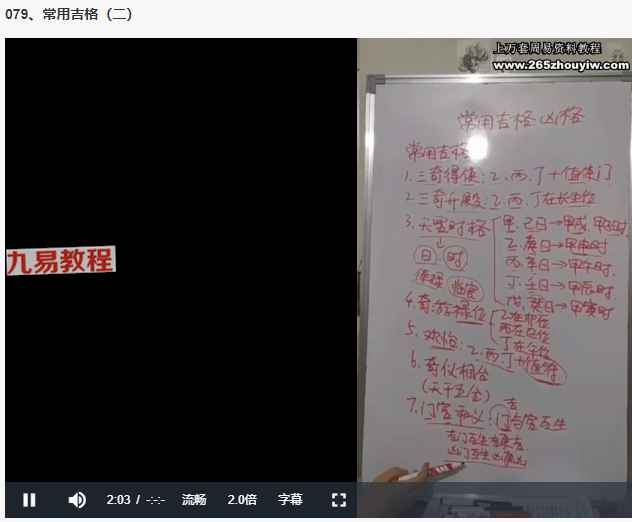 079、常用吉格（二）
上万套周易资料教程
www.265zhouyiw.com
九易教程
常用吉格凶格
常用吉格
1.三奇得使:乙、丙、丁+值使门
2.三奇升殿:乙、丙、丁在长生位
3.天显时格
甲、己日→甲戌、甲子时
乙、庚日→甲申时
丙、辛日→甲午时
丁、壬日→甲辰时
戊、癸日→甲寅时
日 时
4.奇游禄位
乙在卯位
丙在巳位
丁在午位
5.欢怡:乙、丙、丁+值符
6.奇仪相合
(天干五合)
7.门宫和义:门与宫互生
吉
吉门互生
凶门互生
2:03 / -:-:-
流畅
2.0倍
字幕